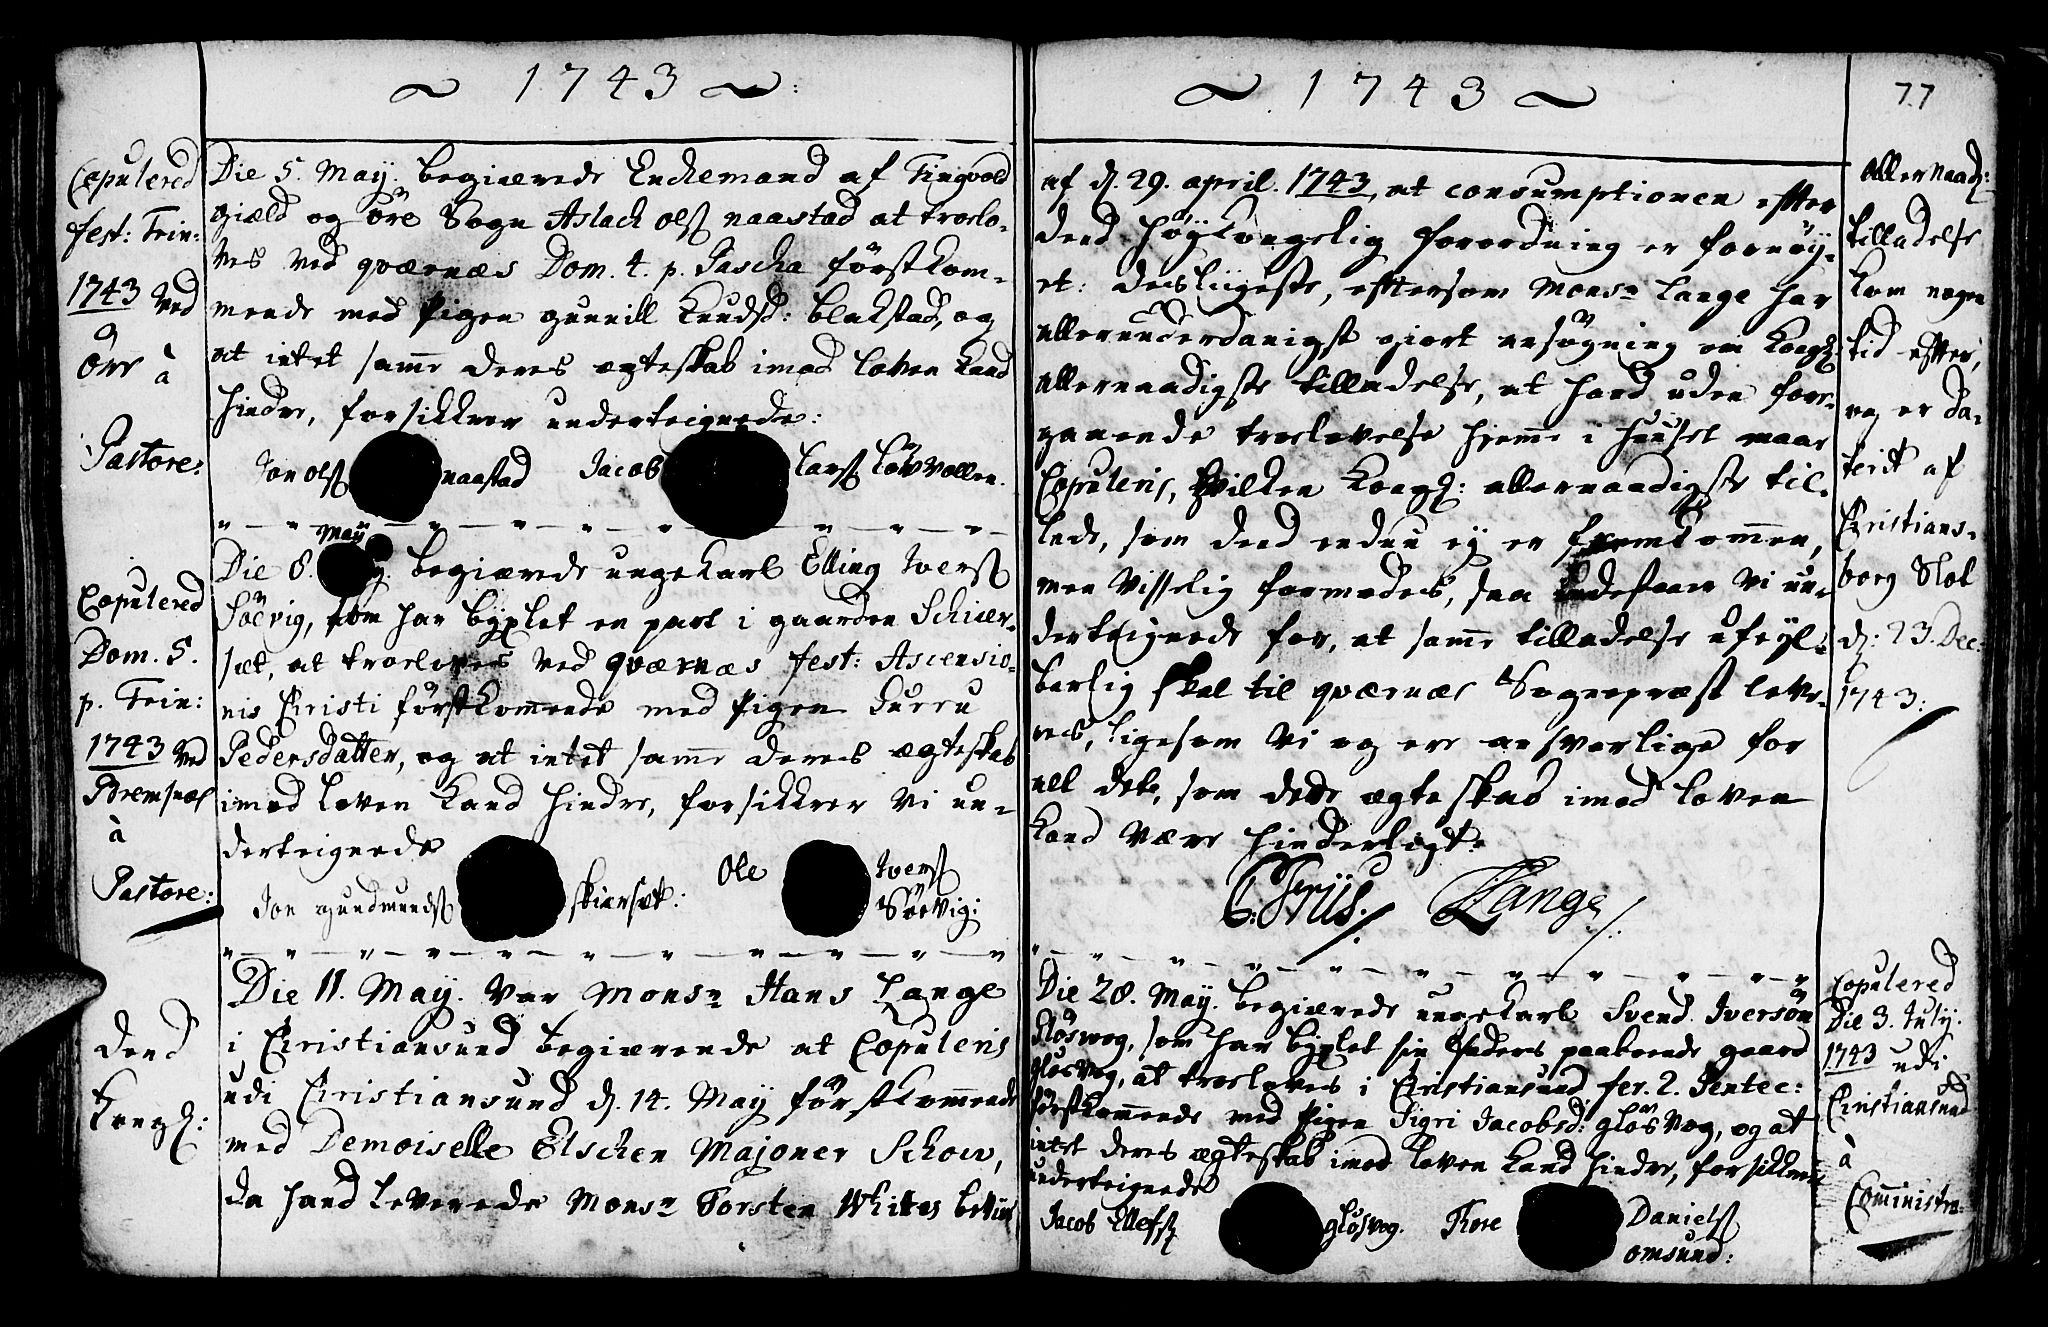 ~ 1743 ~:
Copulered
fest: Trin:
1743 ved
Öre à
Pastore:
Die 5. May. begiærede Enckemand af Tingvold
giæld og öre Sogn Aslach olsſ naastad at troelo-
ves ved qværnæs Dom. 4. p. Pascha förstkom-
mende med Pigen gunnill Knudsd: blakstad, og
at intet samme deres ægteskab imod loven kand
hindre, forsikkrer underteignede:
Jon olsſ naastad Jacob larsſ löv vollen.
Copulered
Dom. 5.
p. Trin:
1743 ved
Bremsnæs
à
Pastore:
May
Die 8. begiærede ungekarl Elling Iversſ
Söevig, som har byxlet en part i gaarden Schier-
sæt, at troeloves ved qværnæs fest: Ascensio-
nis Christi förstkommende med Pigen Gurru
Pedersdatter, og at intet samme deres ægteskab
imod loven kand hindre, forsikkrer vi un-
derteignede
Jon gundmundsſ skiersæt: Ole Iversſ
Söevig:
Dend
Kongl:
Die 11. May. var Monsr Hans Lange
i Christiansund begiærende at Copuleris
udi Christiansund d. 14. May förstkommende
med Demoiselle Elschen Majoner Schow,
da hand leverede Monsr Torsten Whittes beviis
~ 1743 ~
77
af d. 29. april. 1743, at consumptionen efter
dend höykongelig forordning er fornöy-
et: desligeste, eftersom Monsr Lange har
allerunderdanigst giort ansögning om Kongl:
allernaadigste tilladelse, at hand uden fore-
gaaende troelovelse hjemme i huuset maae
Copuleris, hvilken Kongl: allernaadigste til-
lade, som dend endnu ej er fremkommen,
men visselig formodes, saa indestaar vi un-
derteignede for, at samme tilladelse ufeyl-
barlig skal til qværnæs Sognepræst leve-
res, ligesom vi og ere ansvarlige for
alt dete, som dette ægteskab imod loven
kand være hinderligt.
C: Friis. HLange
allernaad:
tilladelse
kom nogen
tid efter,
og er da-
terit af
Christians-
borg Slot
d: 23. Dec:
1743:
Die 28. May. begiærede ungekarl Svend Iversön
Glösvog, som har byxlet sin faders paaboende gaard
glösvog, at troeloves i Christiansund fer. 2. Pentec:
förstkommende med Pigen Sigri Jacobsd: glösvog, og at
intet deres ægteskab imod loven kand hindre, forsikkrer
underteignede
Jacob Ellefsſ glösvog. Thore Danielsſ
omsund:
Copulered
Die 3. July.
1743 udi
Christiansund
à
Cominist: